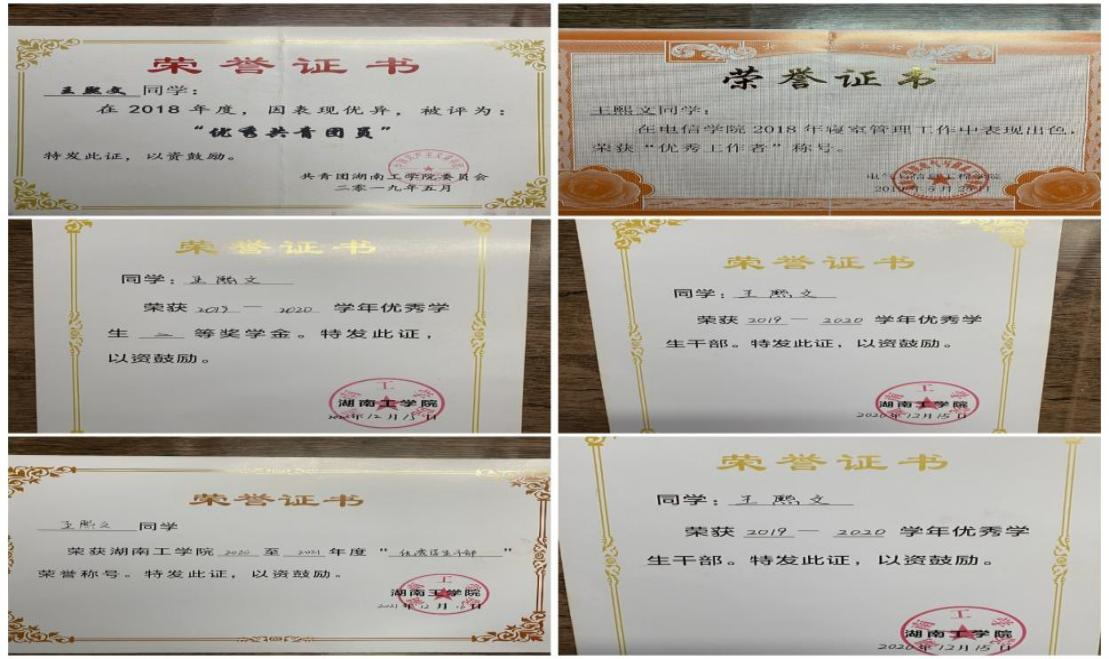 荣誉证书
王熙文 同学：
在 2018 年度，因表现优异，被评为：
“优秀共青团员”
特发此证，以资鼓励。
共青团湖南工学院委员会
二零一九年五月
荣誉证书
王熙文同学：
在电信学院 2018 年寝室管理工作中表现出色，
荣获“优秀工作者”称号。
电气与信息工程学院
荣誉证书
同学：王熙文
荣获 2019 — 2020 学年优秀学
生 二 等奖学金。特发此证，
以资鼓励。
湖南工学院
2020年12月15日
荣誉证书
同学：王熙文
荣获 2019 — 2020 学年优秀学
生干部。特发此证，以资鼓励。
湖南工学院
2020年12月15日
荣誉证书
王熙文 同学
荣获湖南工学院 2020 至 2021 年度“优秀学生干部”
荣誉称号。特发此证，以资鼓励。
湖南工学院
荣誉证书
同学：王熙文
荣获 2019 — 2020 学年优秀学
生干部。特发此证，以资鼓励。
湖南工学院
2020年12月15日